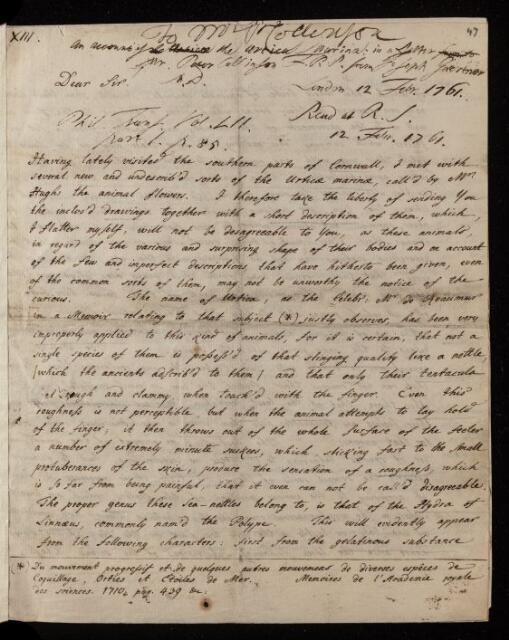 XIII.
To Mr. Collinson
47
An account of the Urtica Marina: in a Letter
Mr. Peter Collinson F.R.S. from Joseph Gaertner
Dear Sir. M.D. London 12 Febr. 1761.
Phil Trans. Vol. LII. Read at R. S.
part 1. p. 75. 12 Febr. 1761.
Having lately visited the southern parts of Cornwall, I met with
several new and undescrib'd sorts of the Urticæ marinæ, call'd by Mr.
Hughs the animal flowers. I therefore take the liberty of sending You
the inclos'd drawings together with a short description of them, which,
I flatter myself, will not be disagreeable to You, as these animals,
in regard of the various and surprising shape of their bodies and on account
of the few and imperfect descriptions, that have hitherto been given, even
of the common sorts of them, may not be unworthy the notice of the
curious. The name of Urtica, as the Celebr. Mr. de Reaumur
in a Memoir relating to that subject (*) justly observes, has been very
improperly applied to this kind of animals, for it is certain, that not a
single species of them is possess'd of that stinging quality like a nettle
(which the ancients adscrib'd to them) and that only their tentacula
rough and clammy, when touch'd with the finger. Even this
roughness is not perceptible but when the animal attempts to lay hold
of the finger; it then throws out of the whole surface of the feeler
a number of extremely minute suckers, which sticking fast to the small
protuberances of the skin, produce the sensation of a roughness, which
is so far from being painful, that it even can not be call'd disagreeable.
The proper genus these Sea-nettles belong to, is that of the Hydra of
Linnæus, commonly nam'd the Polype. This will evidently appear
from the following characters: first from the gelatinous substance
(*) Du mouvement progressif et de quelques autres mouvemens de diverses espèces de
Coquillage, Orties et Etoiles de Mer. Memoires de l'Academie royale
des sciences. 1710. pag. 439 &c.